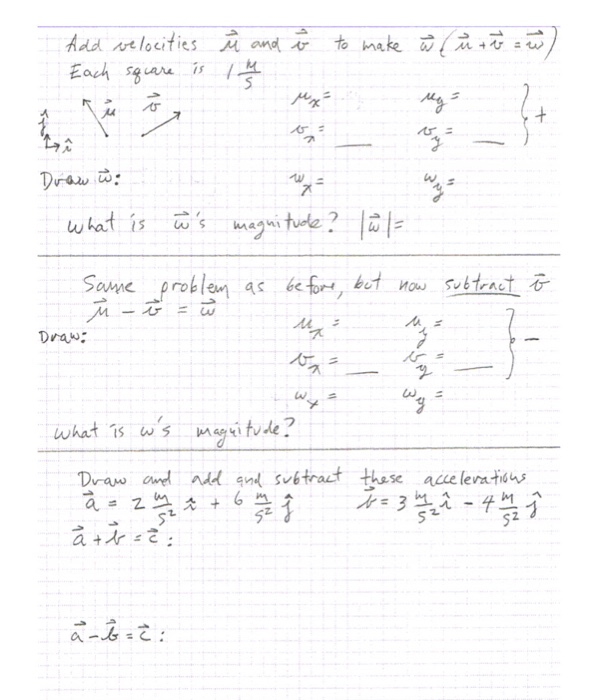 Add velocities u⃗ and v⃗ to make w⃗ (u⃗ + v⃗ = w⃗)
Each square is 1 m/s
u⃗ v⃗
ĵ
î
uₓ = u_y =
vₓ = v_y = } +
Draw w⃗: wₓ = w_y =
what is w⃗'s magnitude? |w⃗| =
Same problem as before, but now subtract v⃗
u⃗ - v⃗ = w⃗
Draw: uₓ = u_y =
vₓ = v_y = } -
wₓ = w_y =
what is w's magnitude?
Draw and add and subtract these accelerations
a⃗ = 2 m/s² î + 6 m/s² ĵ b⃗ = 3 m/s² î - 4 m/s² ĵ
a⃗ + b⃗ = c⃗ :
a⃗ - b⃗ = c⃗ :